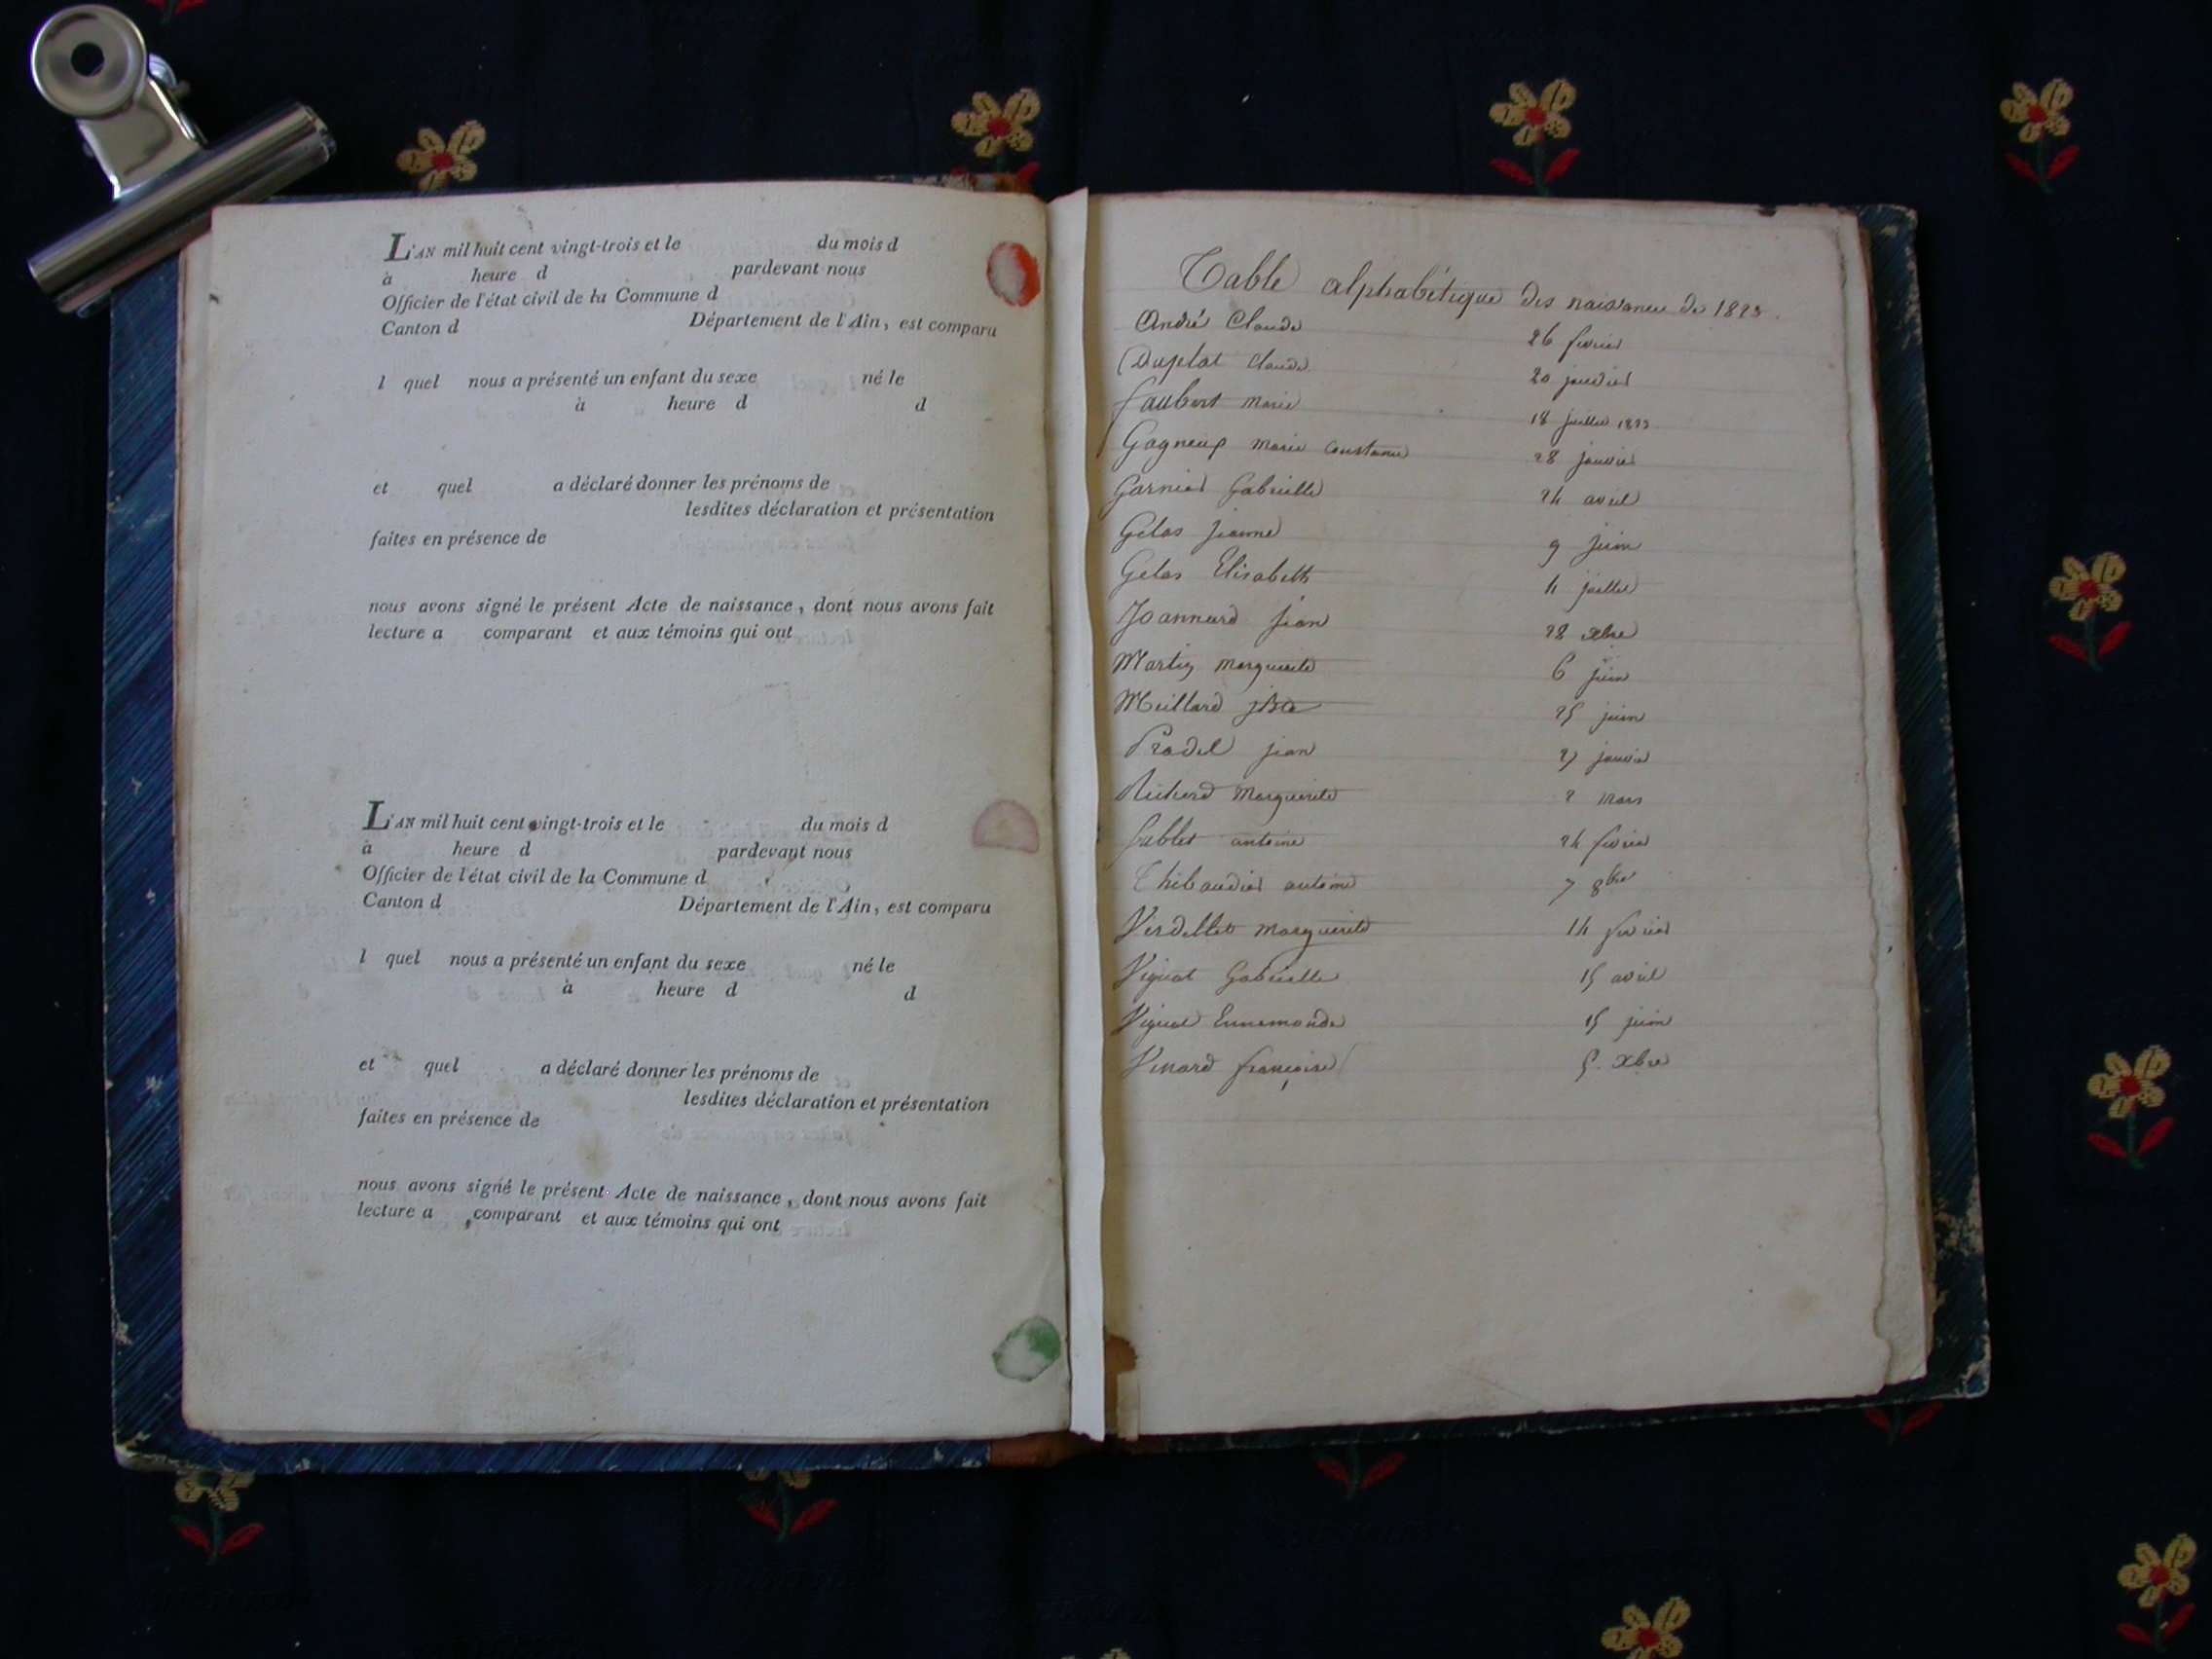 L'AN mil huit cent vingt-trois et le du mois d
à heure d pardevant nous
Officier de l'état civil de la Commune d
Canton d Département de l'Ain, est comparu
l quel nous a présenté un enfant du sexe né le
à heure d d
et quel a déclaré donner les prénoms de
lesdites déclaration et présentation
faites en présence de
nous avons signé le présent Acte de naissance, dont nous avons fait
lecture a comparant et aux témoins qui ont
L'AN mil huit cent vingt-trois et le du mois d
à heure d pardevant nous
Officier de l'état civil de la Commune d
Canton d Département de l'Ain, est comparu
l quel nous a présenté un enfant du sexe né le
à heure d d
et quel a déclaré donner les prénoms de
lesdites déclaration et présentation
faites en présence de
nous avons signé le présent Acte de naissance, dont nous avons fait
lecture a comparant et aux témoins qui ont
Table alphabétique des naissances de 1823.
André Claude 26 février
Duplat Claude 20 janvier
faubert marie 18 juillet 1823
Gagneux marie constance 28 janvier
Garnier Gabrielle 24 avril
Gelas jeanne 9 juin
Gelas Elisabeth 4 juillet
Joannard jean 28 xbre
Martin marguerite 6 juin
Meillard jBte 25 juin
Pradel jean 27 janvier
Richard Marguerite 2 mars
Sablet antoine 24 février
Thibaudier antoine 7 8bre
Verdellet Marguerite 14 février
Viguat Gabrielle 15 avril
Viguat Ennemonde 15 juin
Vinard françoise 5. Xbre